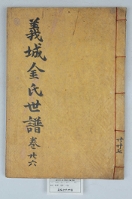 義城金氏世譜
卷廿六